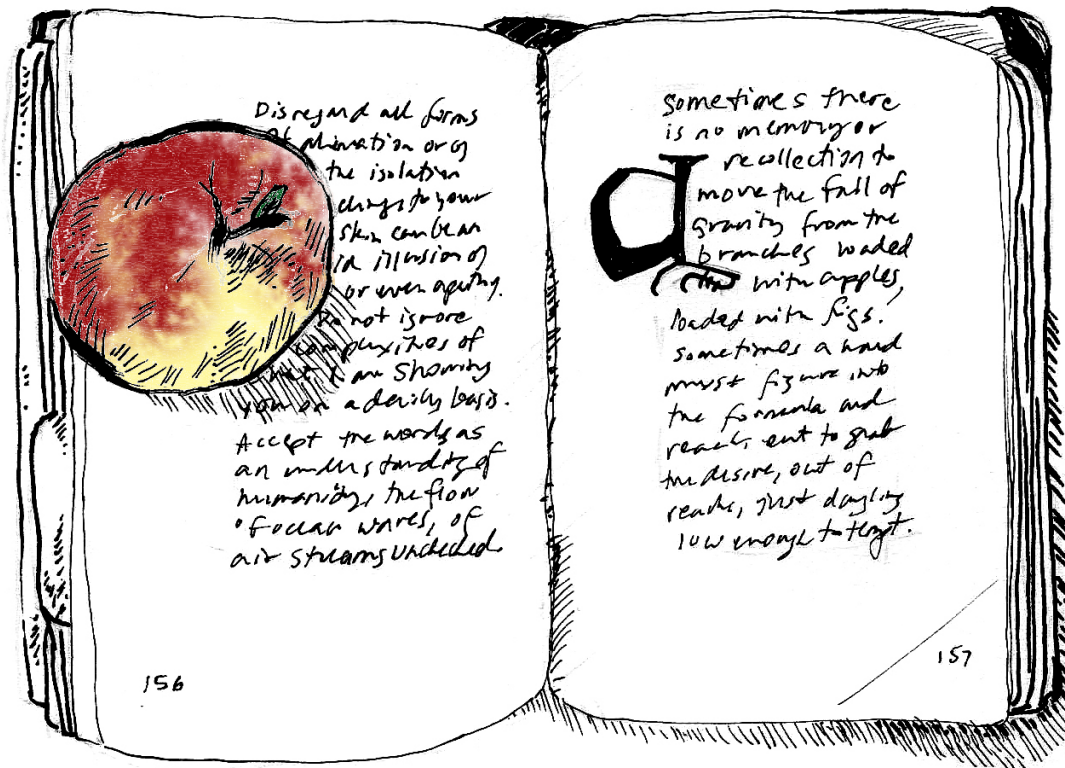 Disregard all forms
of animation or of
the isolation
clings to your
skin can be an
illusion of
or even
Do not ignore
complexities of
I am showing
you on a daily basis.
Accept the words as
an understanding of
humanity, the flow
of ocean waves, of
air streams
156
sometimes there
is no memory or
recollection to
move the fall of
gravity from the
branches loaded
with apples,
loaded with figs.
sometimes a hand
must figure into
the formula and
reach out to grab
the desire, out of
reach, just dangling
low enough to tempt.
157